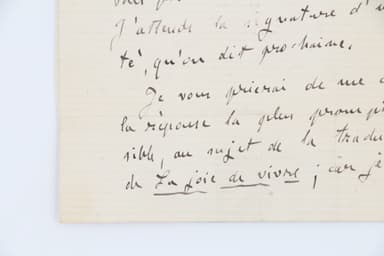 J'attends la signature d'u
té, qu'on dit prochaine.
Je vous prierai de me
la réponse la plus promp
sible, au sujet de la tradu
de La joie de vivre ; car je